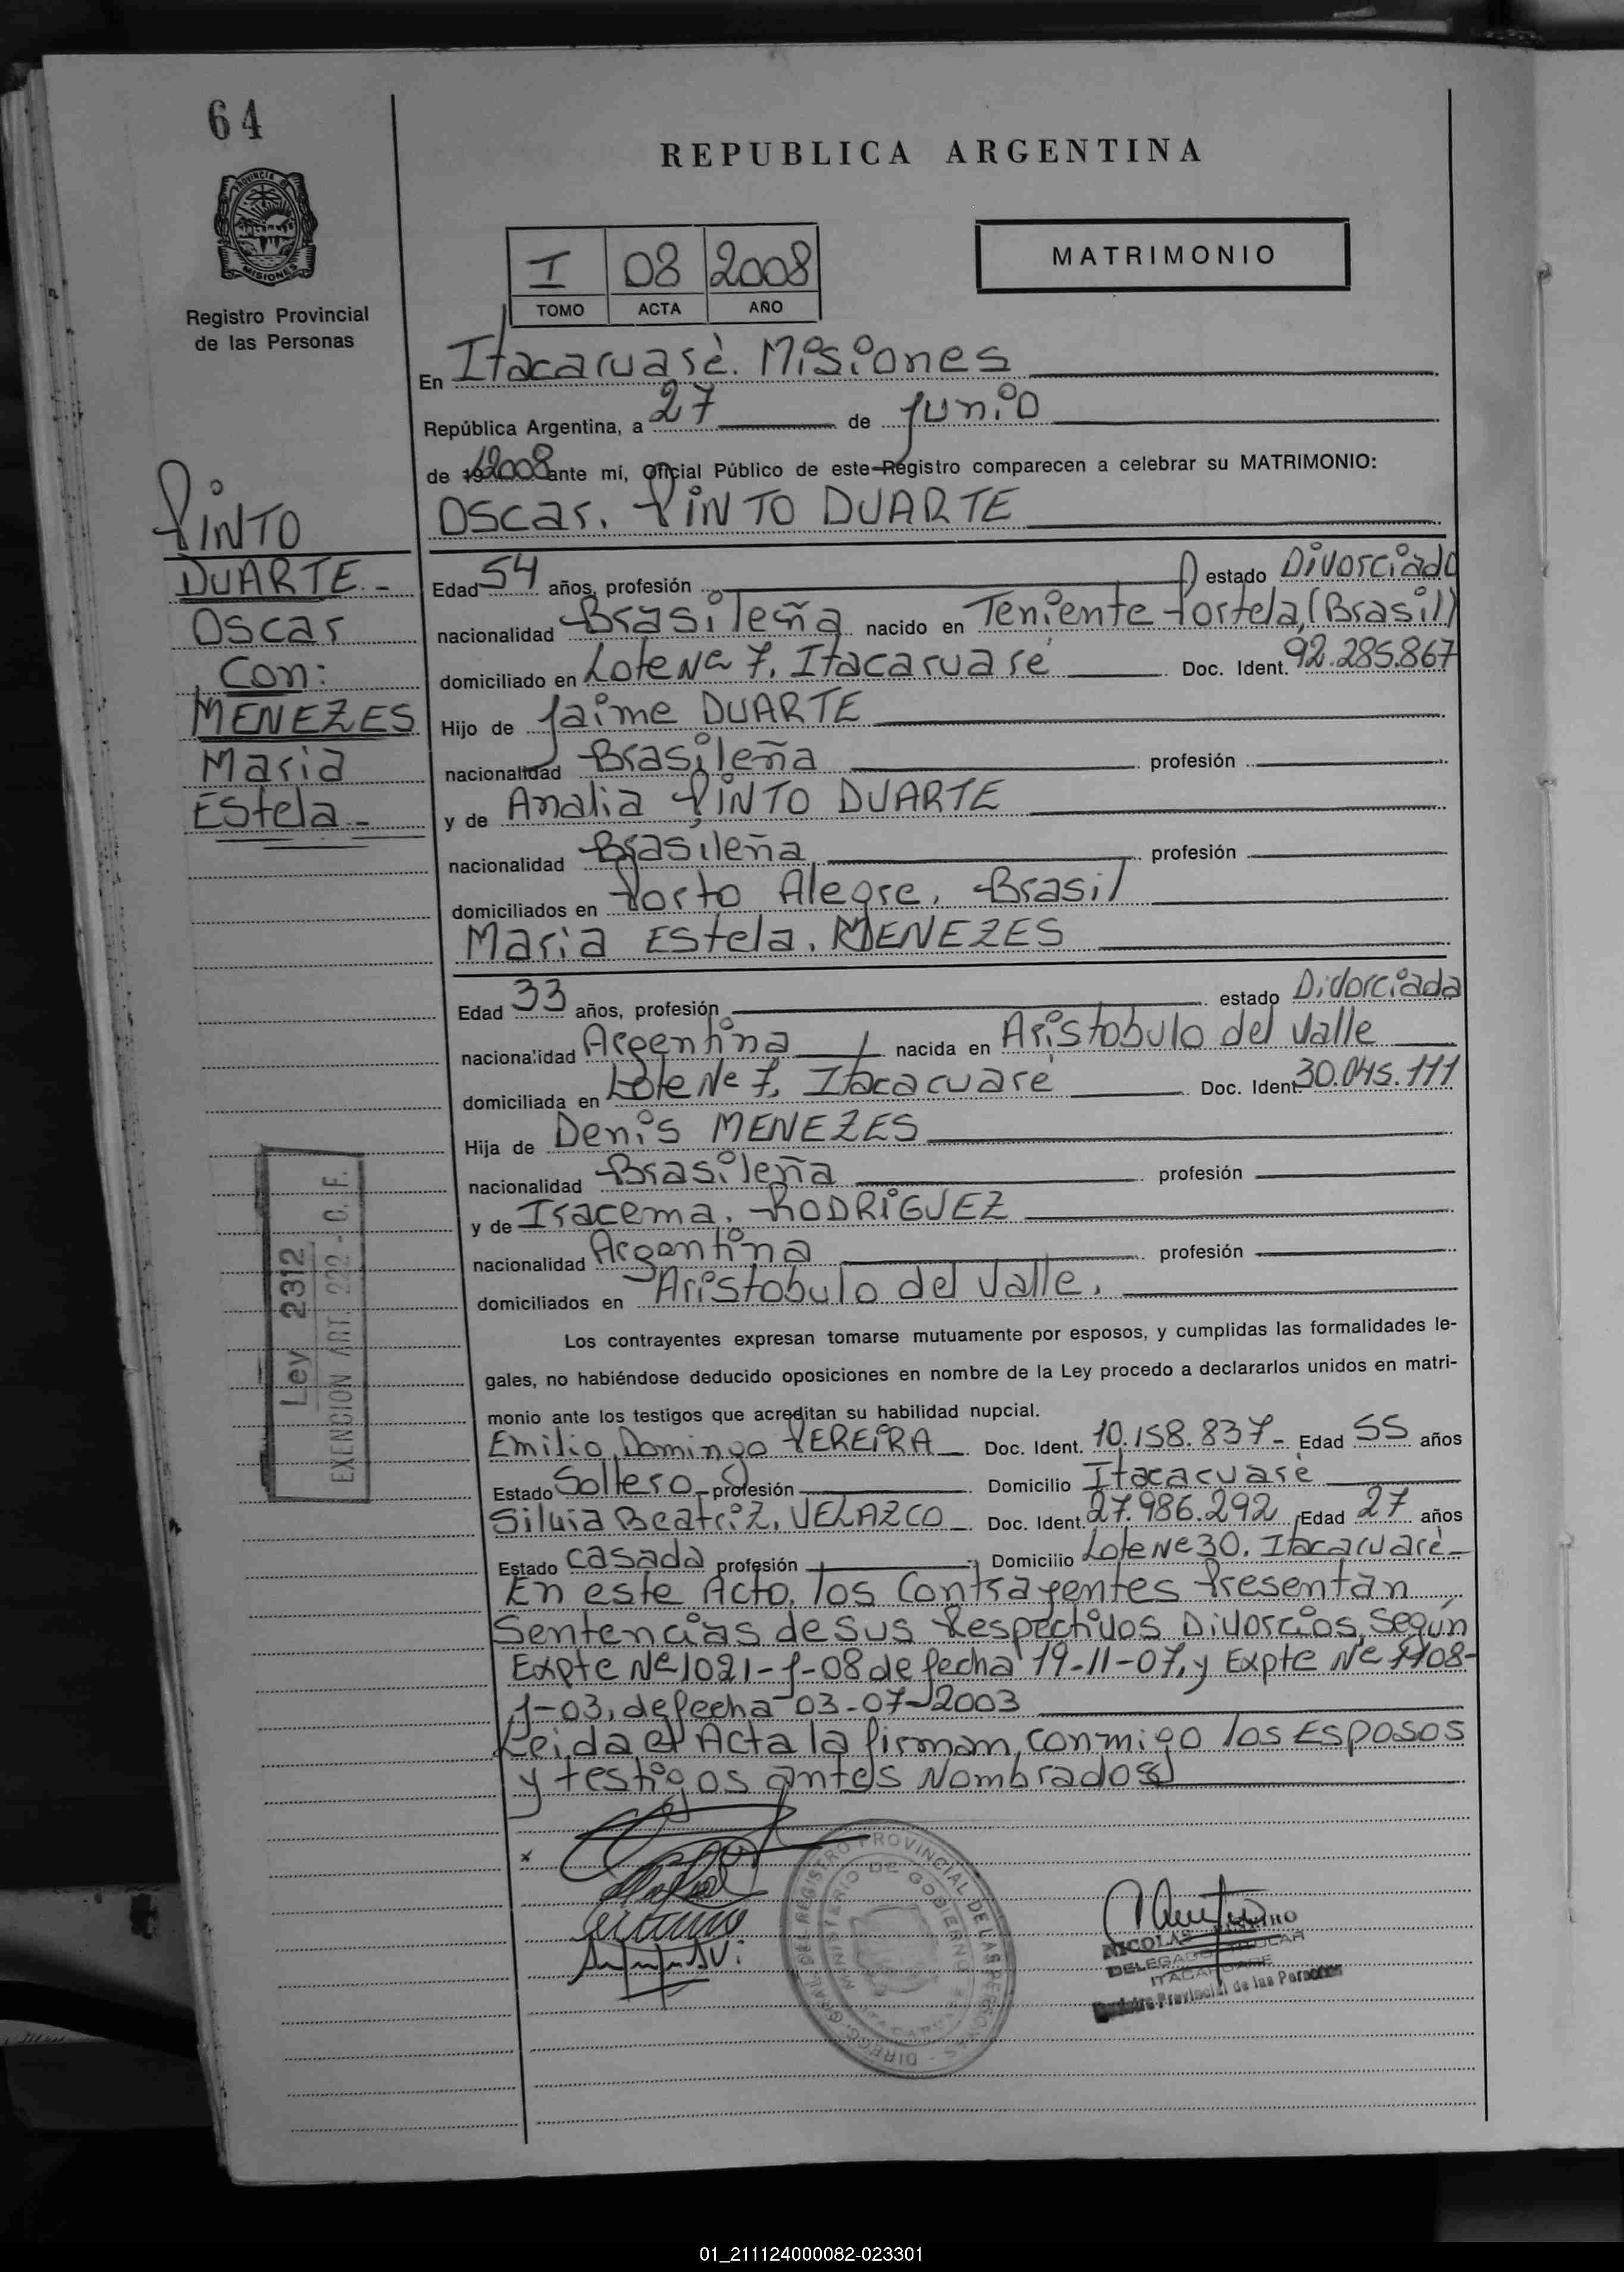 64
REPUBLICA ARGENTINA
PROVINCIA DE
MISIONES
Registro Provincial
de las Personas
I 08 2008
TOMO ACTA AÑO
MATRIMONIO
En Itacaruarè. Misiones
República Argentina, a 27 de Junio
de 19 2008 ante mí, Oficial Público de este Registro comparecen a celebrar su MATRIMONIO:
PINTO
DUARTE.-
Oscar
Con:
MENEZES
Maria
Estela.-
Oscar. PINTO DUARTE
Edad 54 años, profesión estado Divorciado
nacionalidad Brasileña nacido en Teniente Portela, (Brasil)
domiciliado en Lote Nº 7, Itacaruaré Doc. Ident. 92.285.867
Hijo de Jaime DUARTE
nacionalidad Brasileña profesión
y de Analia PINTO DUARTE
nacionalidad Brasileña profesión
domiciliados en Porto Alegre, Brasil
Maria Estela. MENEZES
Edad 33 años, profesión estado Divorciada
nacionalidad Argentina nacida en Aristobulo del Valle
domiciliada en Lote Nº 7, Itacaruaré Doc. Ident. 30.045.111
Hija de Denis MENEZES
nacionalidad Brasileña profesión
y de Iracema. RODRIGUEZ
nacionalidad Argentina profesión
domiciliados en Aristobulo del Valle.
Ley 2312
EXENCION ART. 222 - C. F.
Los contrayentes expresan tomarse mutuamente por esposos, y cumplidas las formalidades le-
gales, no habiéndose deducido oposiciones en nombre de la Ley procedo a declararlos unidos en matri-
monio ante los testigos que acreditan su habilidad nupcial.
Emilio Domingo PEREIRA Doc. Ident. 10.158.837- Edad 55 años
Estado Soltero profesión Domicilio Itacaruarè
Silvia Beatriz, VELAZCO Doc. Ident. 27.986.292 Edad 27 años
Estado casada profesión Domicilio Lote Nº 30. Itacaruarè
En este Acto, los Contrayentes Presentan
Sentencias de sus Respectivos Divorcios, Según
Expte Nº 1021-J-08 de fecha 19-11-07, y Expte Nº 1108-
J-03, de fecha 03-07-2003
Leida el Acta la firman, conmigo los Esposos
y testigos antes Nombrados
DIRECC. GRAL. DEL REGISTRO PROVINCIAL DE LAS PERSONAS
MINISTERIO DE GOBIERNO
NICOLAS
DELEGADO TITULAR
ITACARUARE
Registro Provincial de las Personas
01_211124000082-023301